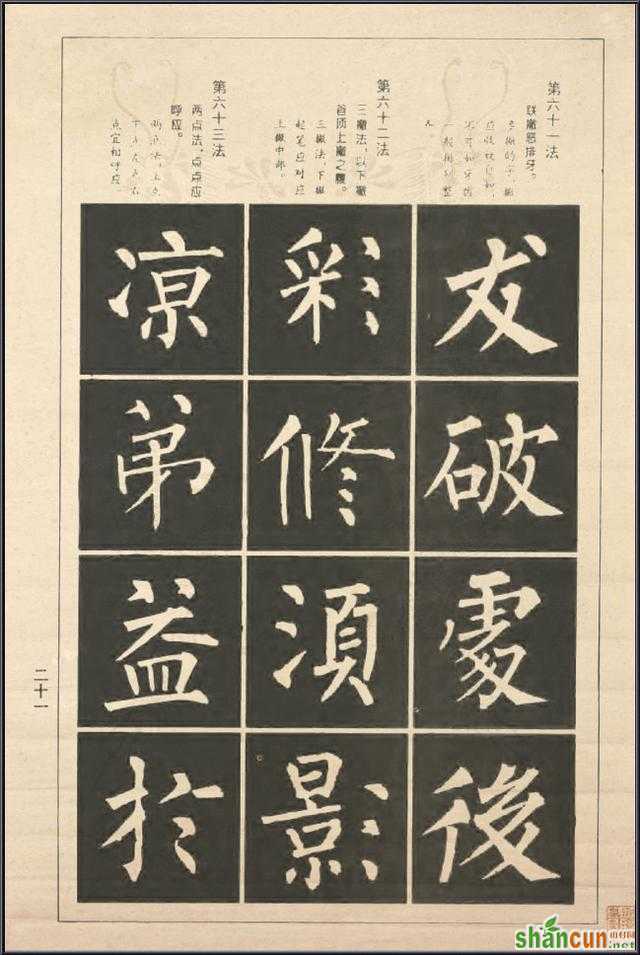 第六十一法
联撇恶排牙。
多撇的字,撇
应收放自如,
不可如牙齿
一般排列整
第六十二法
三撇法,以下撇
首顶上撇之腹。
三撇法,下撇
起笔应对应
上撇中部。
第六十三法
两点法,点点应
呼应。
两点法,上点
下点左点右
点宜相呼应。
友破處後
彩修須影
凉弟益於
二十一
shancun.net
山村网